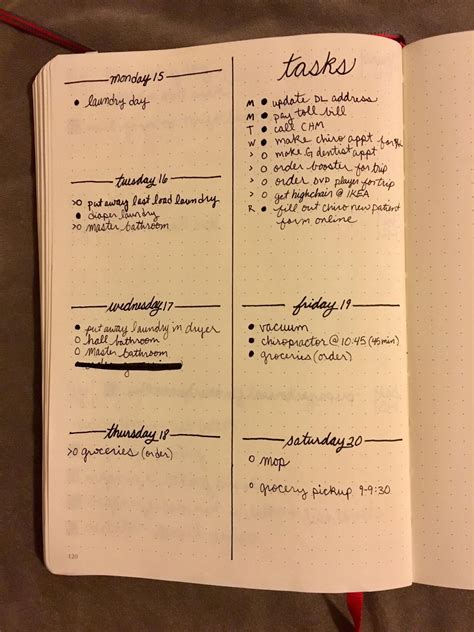 monday 15
● laundry day
tuesday 16
>o put away last load laundry
● diaper laundry
>o master bathroom
wednesday 17
● put away laundry in dryer
o hall bathroom
o Master bathroom
thursday 18
>o groceries (order)
120
tasks
M ● update DL address
M ● pay toll bill
T ● call CHM
W ● make chiro appt for
> o make G dentist appt
> o order booster for trip
> o order DVD player for trip
> o get highchair @ IKEA
R ● fill out chiro new patient
form online
friday 19
● vacuum
● chiropractor @ 10:45 (45min)
● groceries (order)
saturday 20
o mop
o grocery pickup 9-9:30